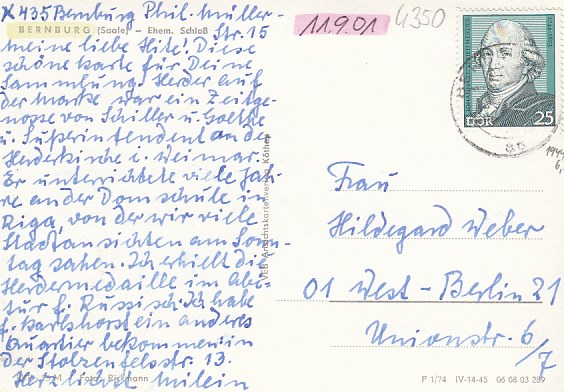 X 435 Bernburg Phil.-Müller-
Str. 15
BERNBURG (Saale) – Ehem. Schloß
Meine liebe Hilde! Diese
schöne Karte für Deine
Sammlung. Herder auf
der Marke war ein Zeitge-
nosse von Schiller u. Goethe
u. Superintendent an der
Herderkirche i. Weimar.
Er unterrichtete viele Jah-
re an der Domschule in
Riga, von der wir viele
Stadtansichten am Sonn-
tag sahen. Ich erhielt die
Herdermedaille im Abi-
tur f. Russisch. Ich habe
f. Karlshorst ein anderes
Quartier bekommen in
der Stolzenfelsstr. 13.
Foto: Dickmann
Herzlichst
11.9.01
4350
DDR 25
VEB Ansichtskartenverlag Köthen
Frau
Hildegard Weber
01 West-Berlin 21
Unionstr. 6/7
P 1/74 IV-14-45 06 08 03 289